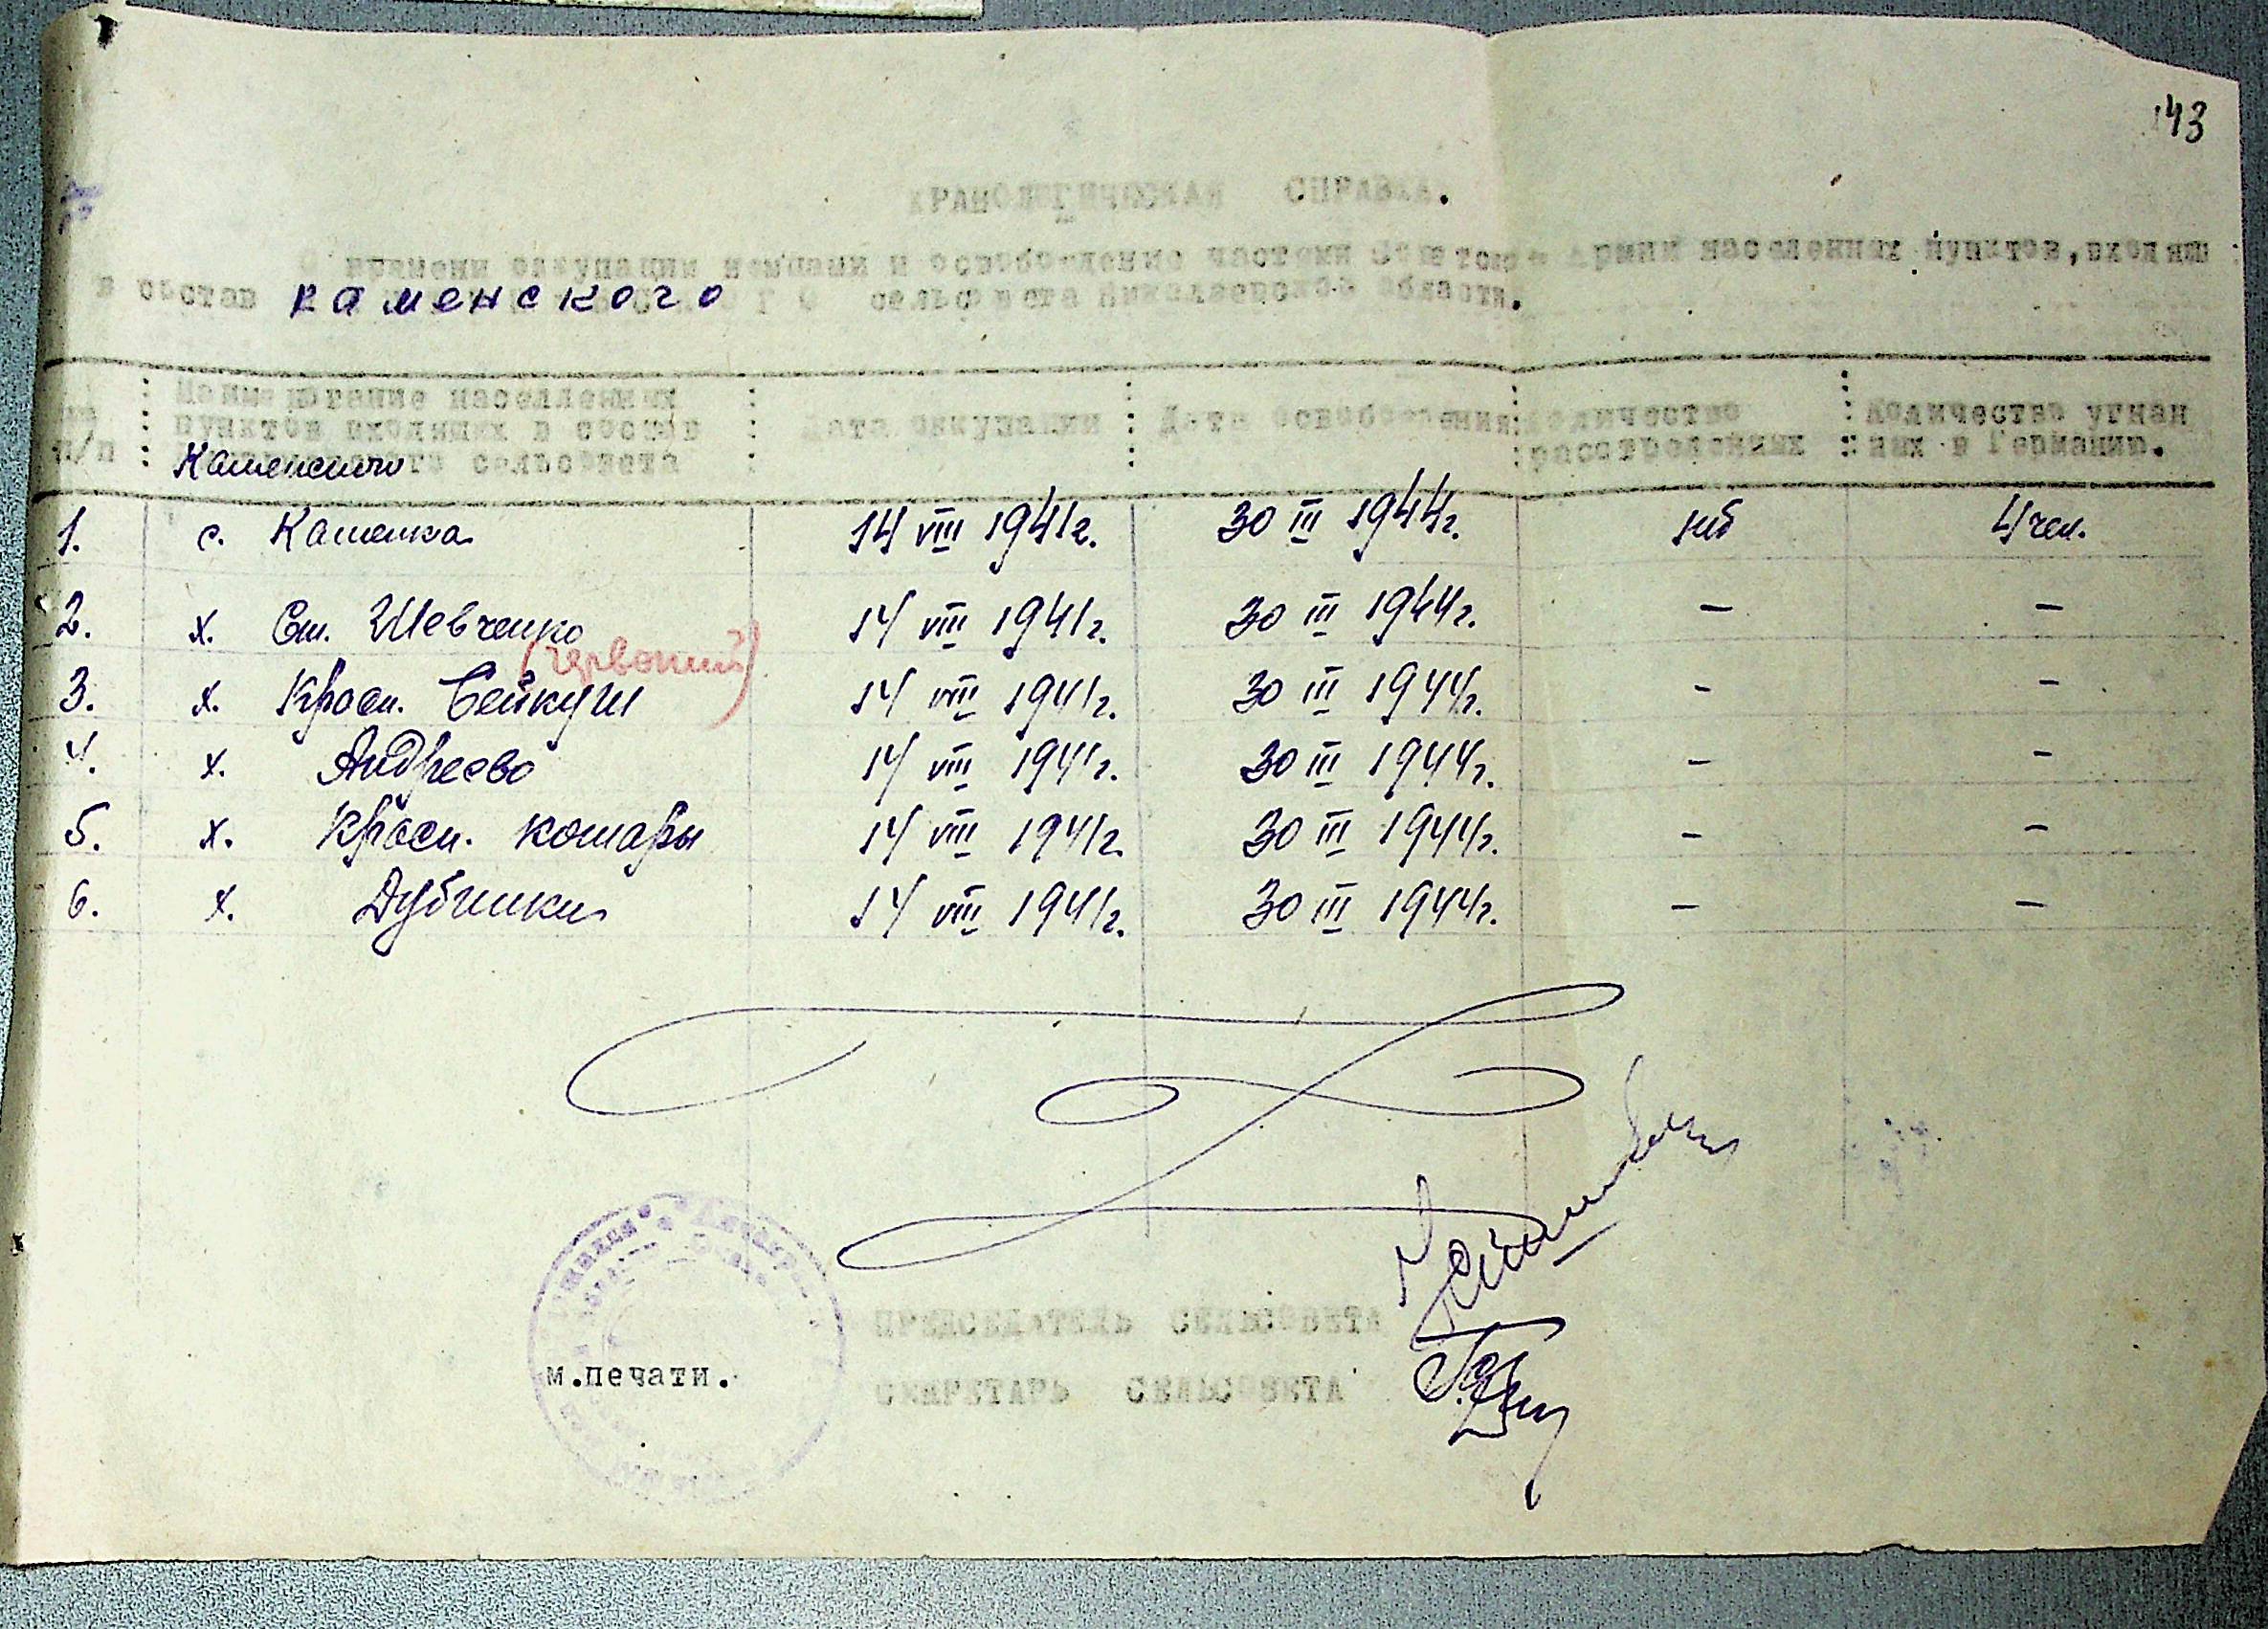 43
ХРАНОЛОГИЧЕСКАЯ СПРАВКА.
О времени оккупации немцами и освобождение частями Советской Армии населенных пунктов, входящ
в состав Каменского сельсовета Николаевской области.
п/п : Наименование населенных пунктов входящих в состав Каменского сельсовета : Дата оккупации : Дата освобождения : Количество расстрелянных : Количество угнан ных в Германию.
1. с. Каменка 14 VIII 1941г. 30 III 1944г. 4 чел.
2. х. Шевченко 14 VIII 1941г. 30 III 1944г. — —
(червоний)
3. х. Красн. Бейкуш 14 VIII 1941г. 30 III 1944г. - -
4. х. Андреево 14 VIII 1941г. 30 III 1944г. - -
5. х. Красн. кошары 14 VIII 1941г. 30 III 1944г. - -
6. х. Дубинки 14 VIII 1941г. 30 III 1944г. — —
ПРЕДСЕДАТЕЛЬ СЕЛЬСОВЕТА
м.печати.
СЕКРЕТАРЬ СЕЛЬСОВЕТА